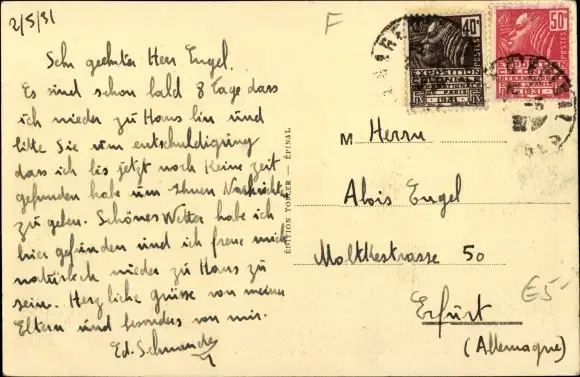 2/5/31
F
Sehr geehrter Herr Engel.
Es sind schon bald 8 Tage dass
ich wieder zu Haus bin und
bitte Sie um entschuldigung
dass ich bis jetzt noch keine zeit
gefunden habe um Ihnen Nachrichten
zu geben. Schönes Wetter habe ich
hier gefunden und ich freue mich
natürlich wieder zu Haus zu
sein. Herzliche grüsse von meinen
Eltern und besonders von mir.
Ed. Schmander
EDITION TOHLER — ÉPINAL
40c
POSTES
EXPOSITION
COLONIALE
INTERNATIONALE
PARIS
1931
50c
POSTES
EXPOSITION
COLONIALE
INTERNATIONALE
PARIS
1931
M Herrn
Alois Engel
Moltkestrasse 50
Erfurt
(Allemagne)
€5-